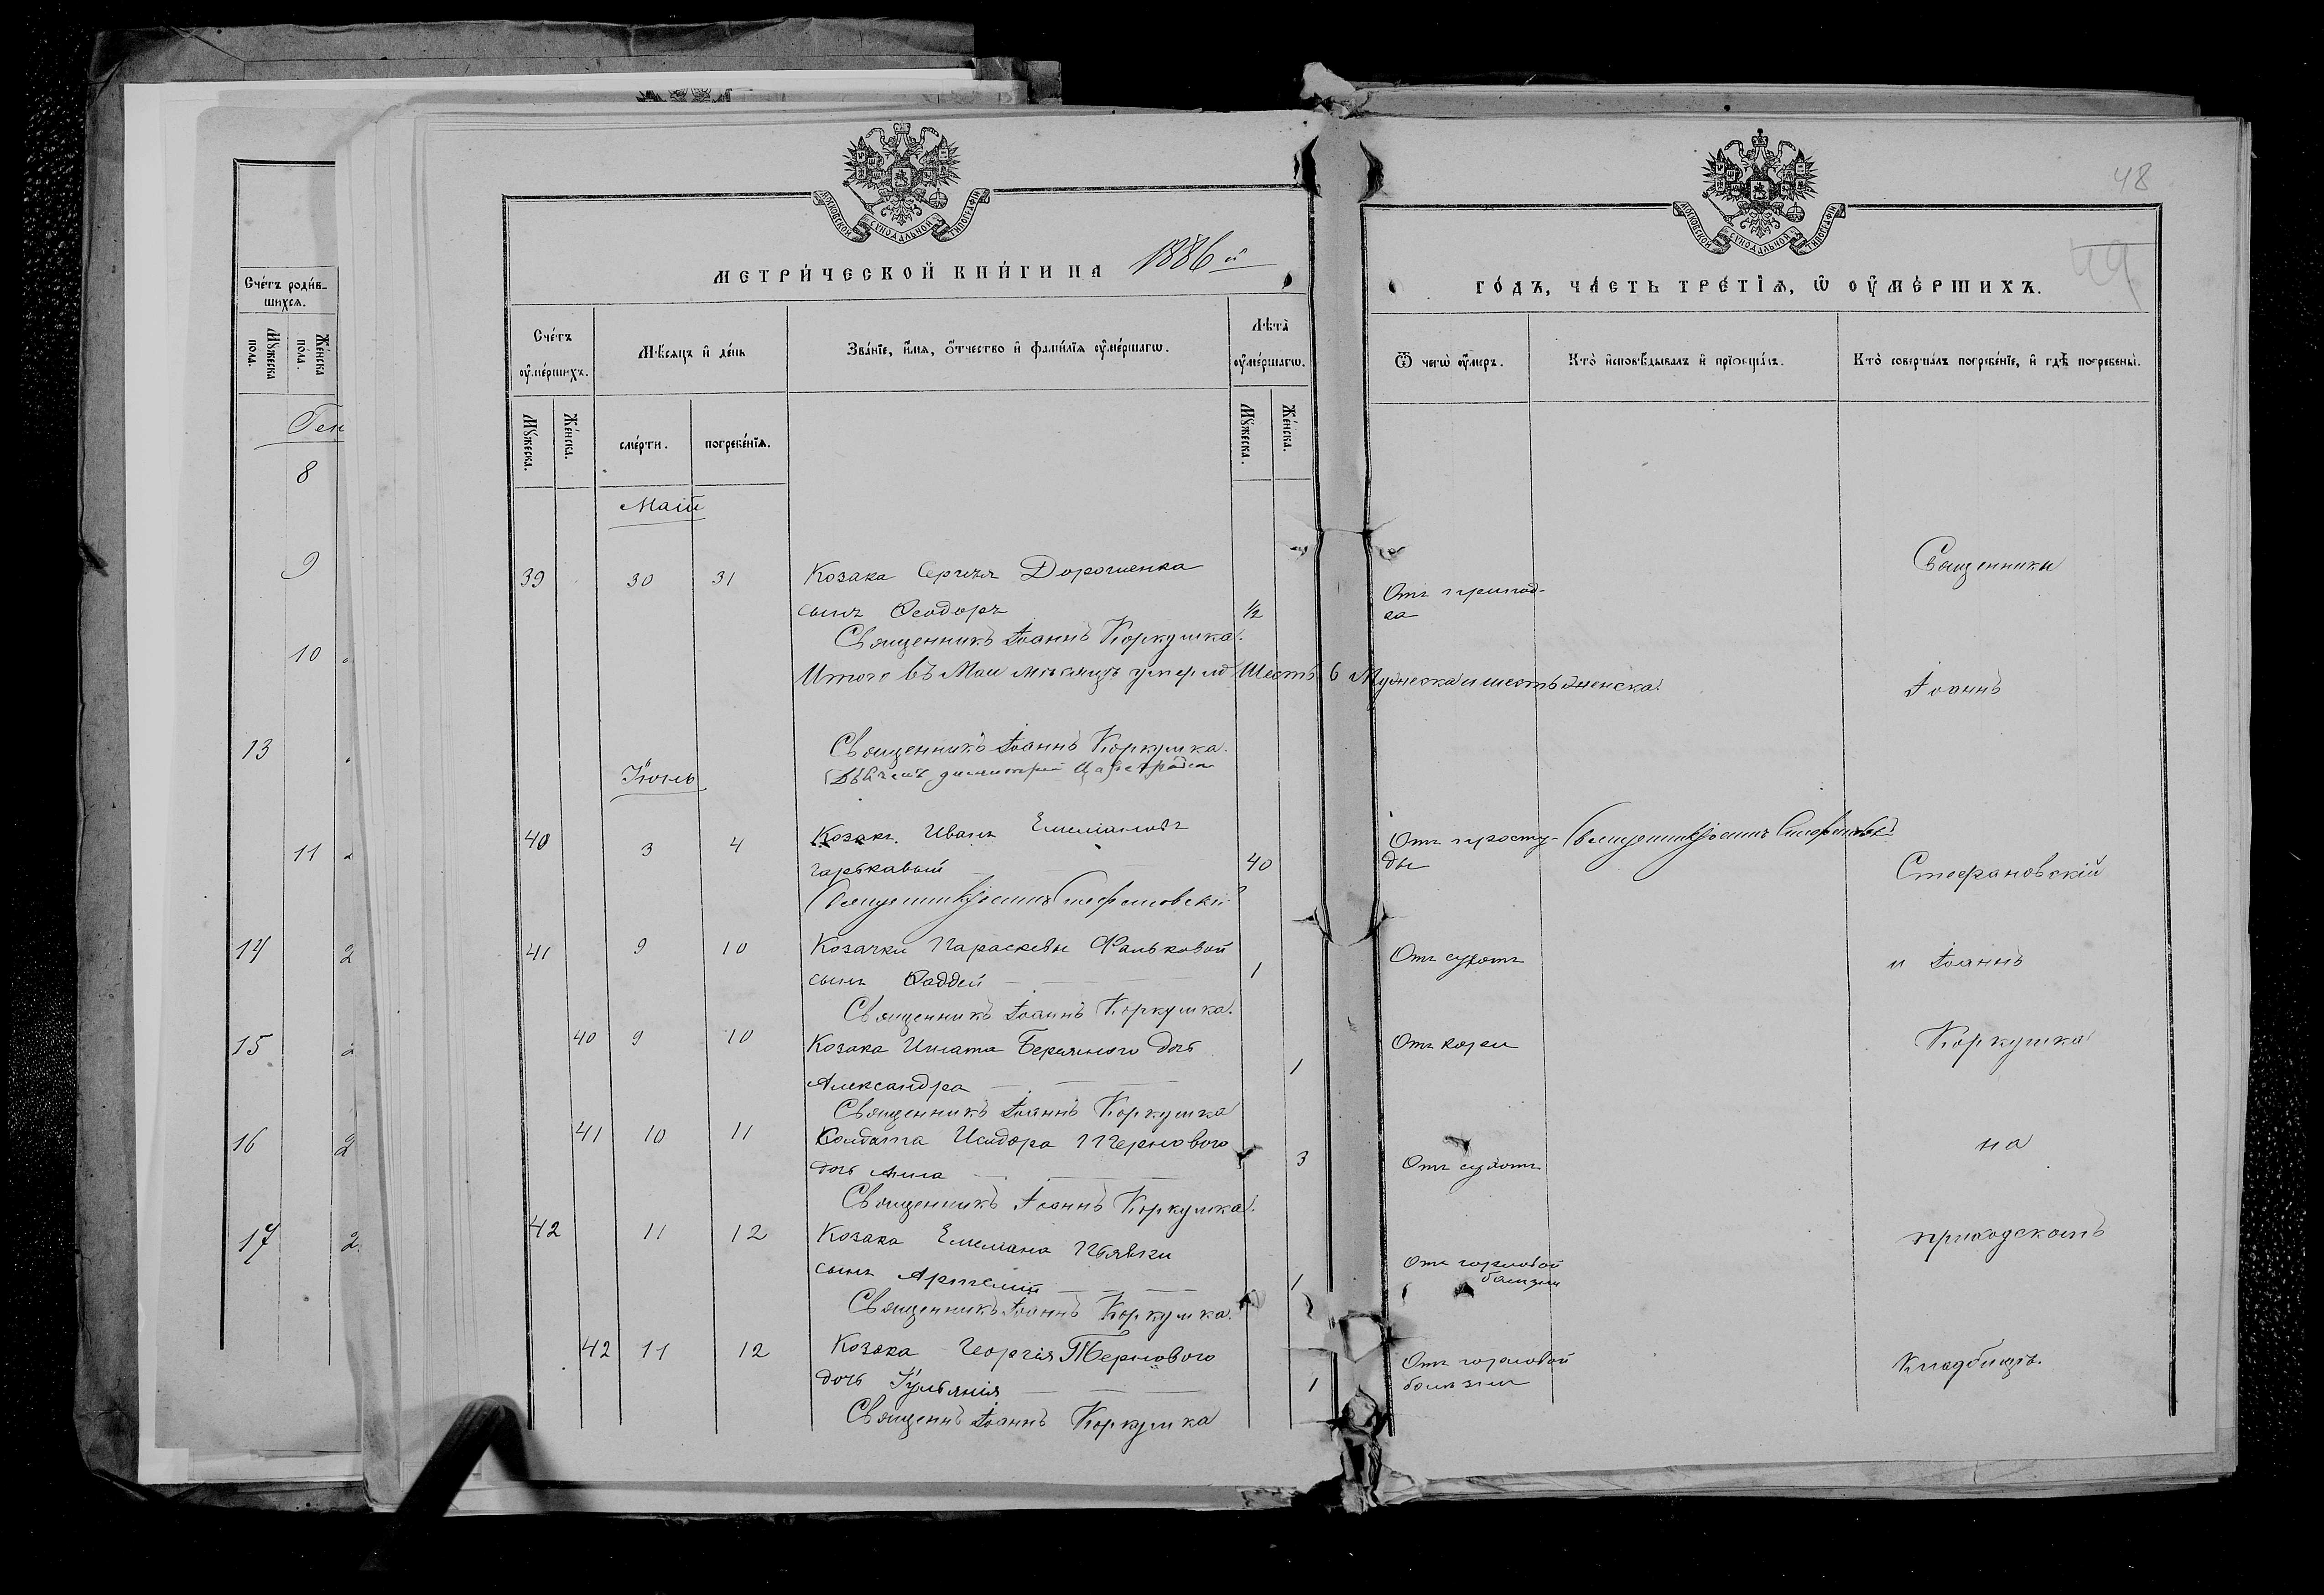 Счетъ родив-
шихся.
Мужеска пола.
Женска пола.
Ген
8
9
10
13
11
14 2
15 2
16 2
17 2
МОСКОВСКОЙ СѴНОДАЛЬНОЙ ТИПОГРАФІИ
МЕТРИЧЕСКОЙ КНИГИ НА 1886 й
Счетъ умершихъ.
Мѣсяцъ и день
Званіе, имя, отчество и фамилія умершагѡ.
Лѣта умершагѡ.
Мужеска.
Женска.
смерти.
погребенія.
Мужеска.
Женска.
Маій
39 30 31 Козака Сергѣя Дорошенка
сынъ Ѳеодоръ 1/2
Священникъ Іоаннъ Коркушка.
Итого въ Маи мѣсяцѣ умерло Шесть 6 Мужеска и шесть женска.
Священникъ Іоаннъ Коркушка.
Іюнь
40 3 4 Козакъ Иванъ Емеліановъ
Гаркавый 40
Священникъ Іоаннъ Стефановскій
41 9 10 Козачки Параскевы Фальковой
сынъ Фаддей 1
Священникъ Іоаннъ Коркушка.
40 9 10 Козака Игната дочь
Александра 1
Священникъ Іоаннъ Коркушка
41 10 11 Солдата Исидора Тернового
дочь Анна 3
Священникъ Іоаннъ Коркушка.
42 11 12 Козака Емеліана Піявки
сынъ Артемій 1
Священникъ Іоаннъ Коркушка.
42 11 12 Козака Георгія Тернового
дочь Іуліанія 1
Священъ Іоаннъ Коркушка
48
МОСКОВСКОЙ СѴНОДАЛЬНОЙ ТИПОГРАФІИ
ГОДЪ, ЧАСТЬ ТРЕТІЯ, Ѡ УМЕРШИХЪ.
Ѿ чегѡ умеръ.
Кто исповѣдывалъ и пріобщалъ.
Кто совершалъ погребеніе, и гдѣ погребены.
Отъ
Священники
Іоаннъ
Отъ просту-
ды
Священникъ Іоаннъ Стефановскій
Стефановскій
Отъ сухотъ
и Іоаннъ
Отъ кори
Коркушка
Отъ сухотъ
на
приходскомъ
Отъ горловой
болѣзни
Отъ горловой
болѣзни
Кладбищѣ.